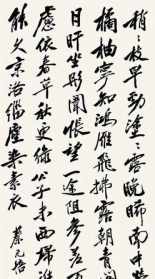 梢〻枝早勁塗〻露晚晞南中榮
橘柚寧知鴻雁飛拂霧朝青閣
日旰坐彤闈悵望一途阻參差百
慮依春草秋更綠公子未西歸誰
能久京洛緇塵染素衣
蔡元培